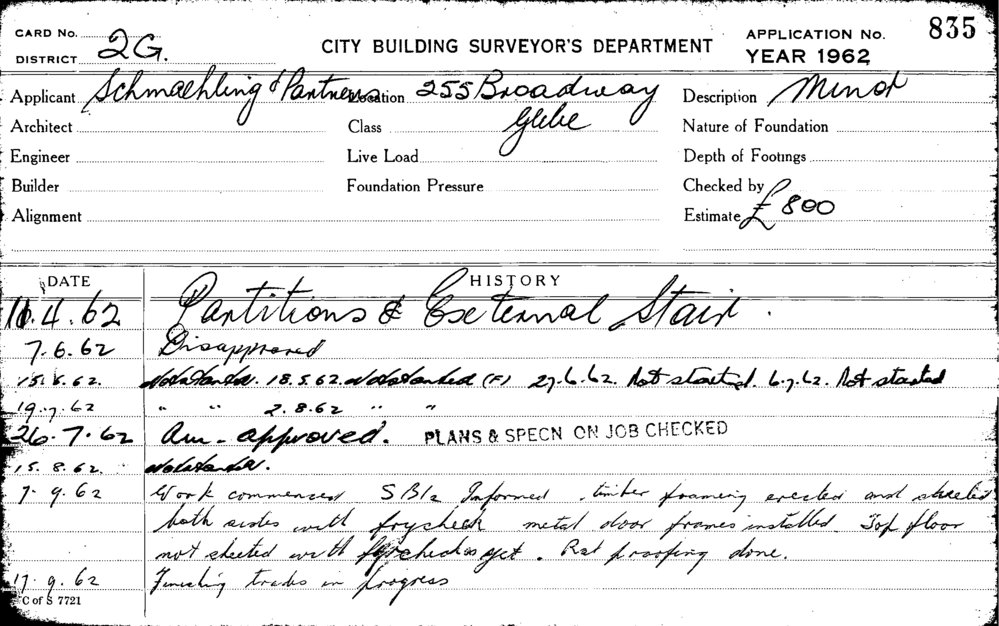 CARD No. 2G. CITY BUILDING SURVEYOR'S DEPARTMENT APPLICATION No. 835
DISTRICT YEAR 1962
Applicant Schmaehling & Partners Location 255 Broadway Description Minor
Architect Class Glebe Nature of Foundation
Engineer Live Load Depth of Footings
Builder Foundation Pressure Checked by
Alignment Estimate £800
DATE HISTORY
11.4.62 Partitions & External Stair.
7.6.62 Disapproved
15.5.62. Not started. 18.5.62. Not started (F) 27.6.62. Not started. 6.7.62. Not started
19.7.62 " " 2.8.62 " "
26.7.62 Am-approved. PLANS & SPECN ON JOB CHECKED
15.8.62. Not started.
7.9.62 Work commenced Informed, timber framing erected and sheeted
both sides with frycheck metal door frames installed Top floor
not sheeted with frycheck as yet. Rat proofing done.
17.9.62 Finishing trades in progress
C of S 7721